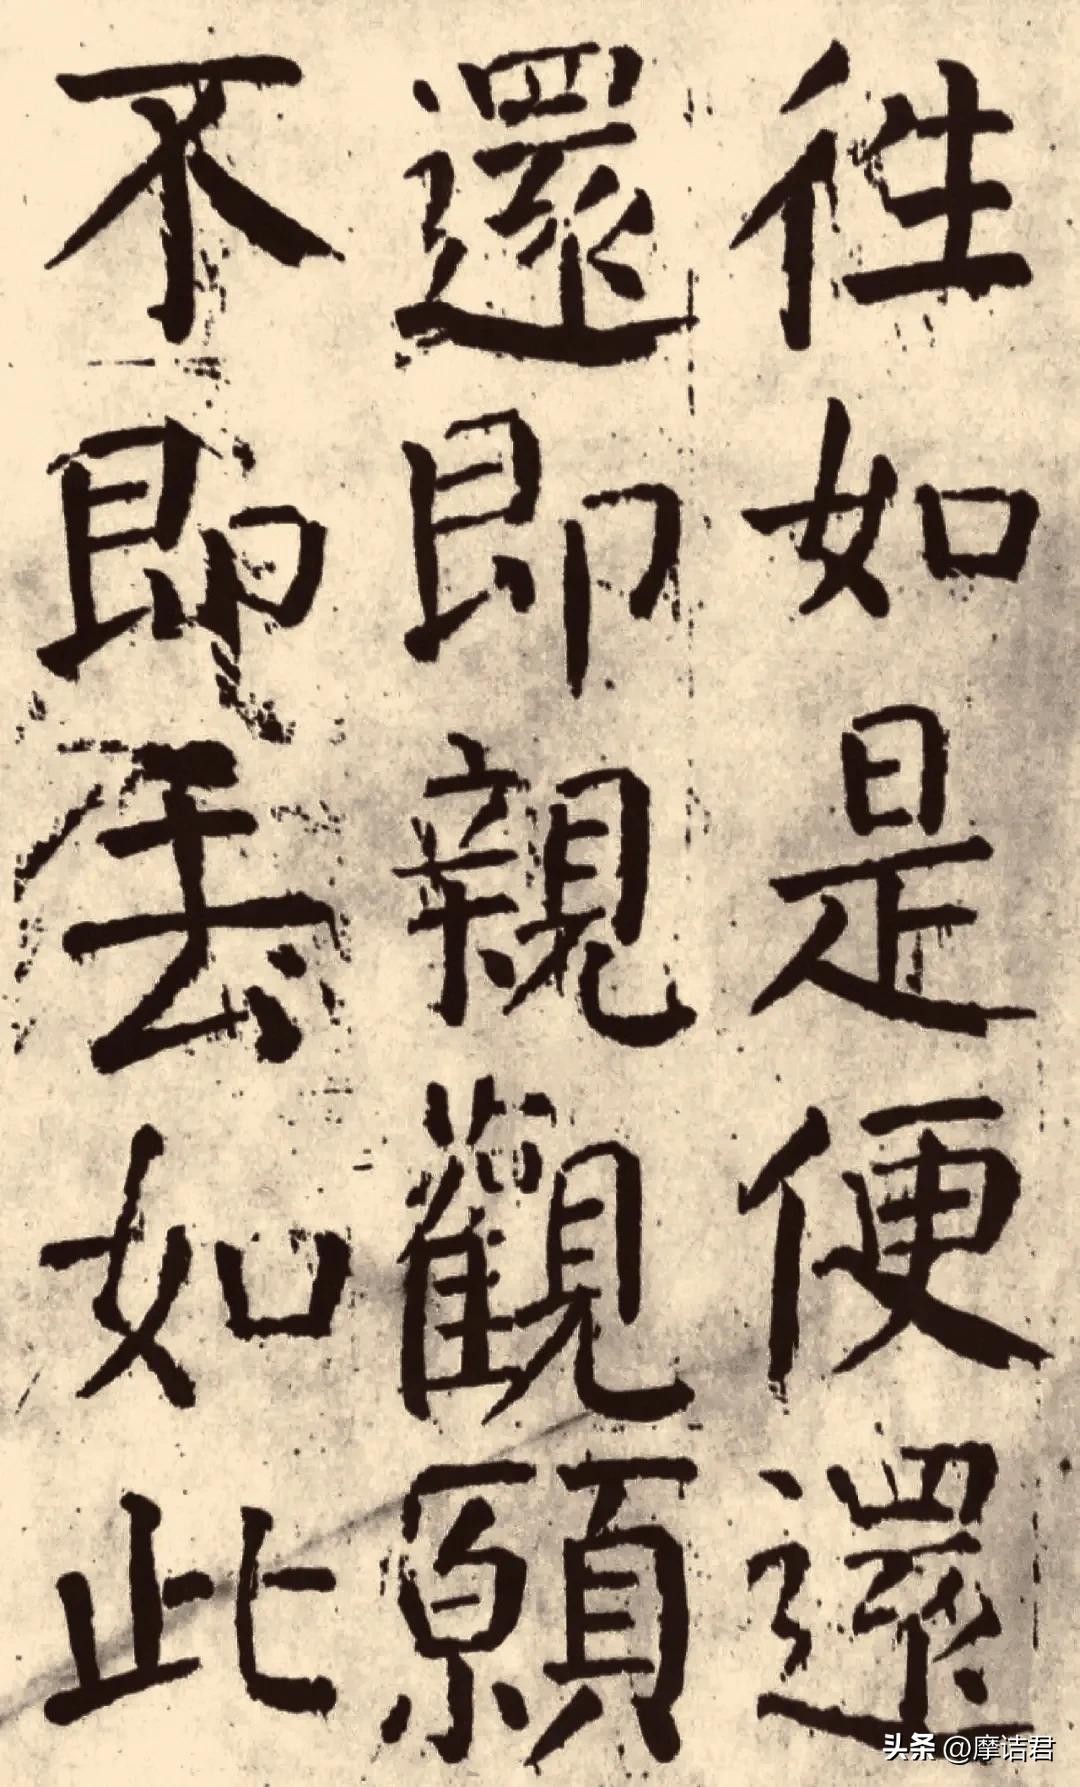 徃如是便還
還即親觀願
不即丟如此
头条 @摩诘君